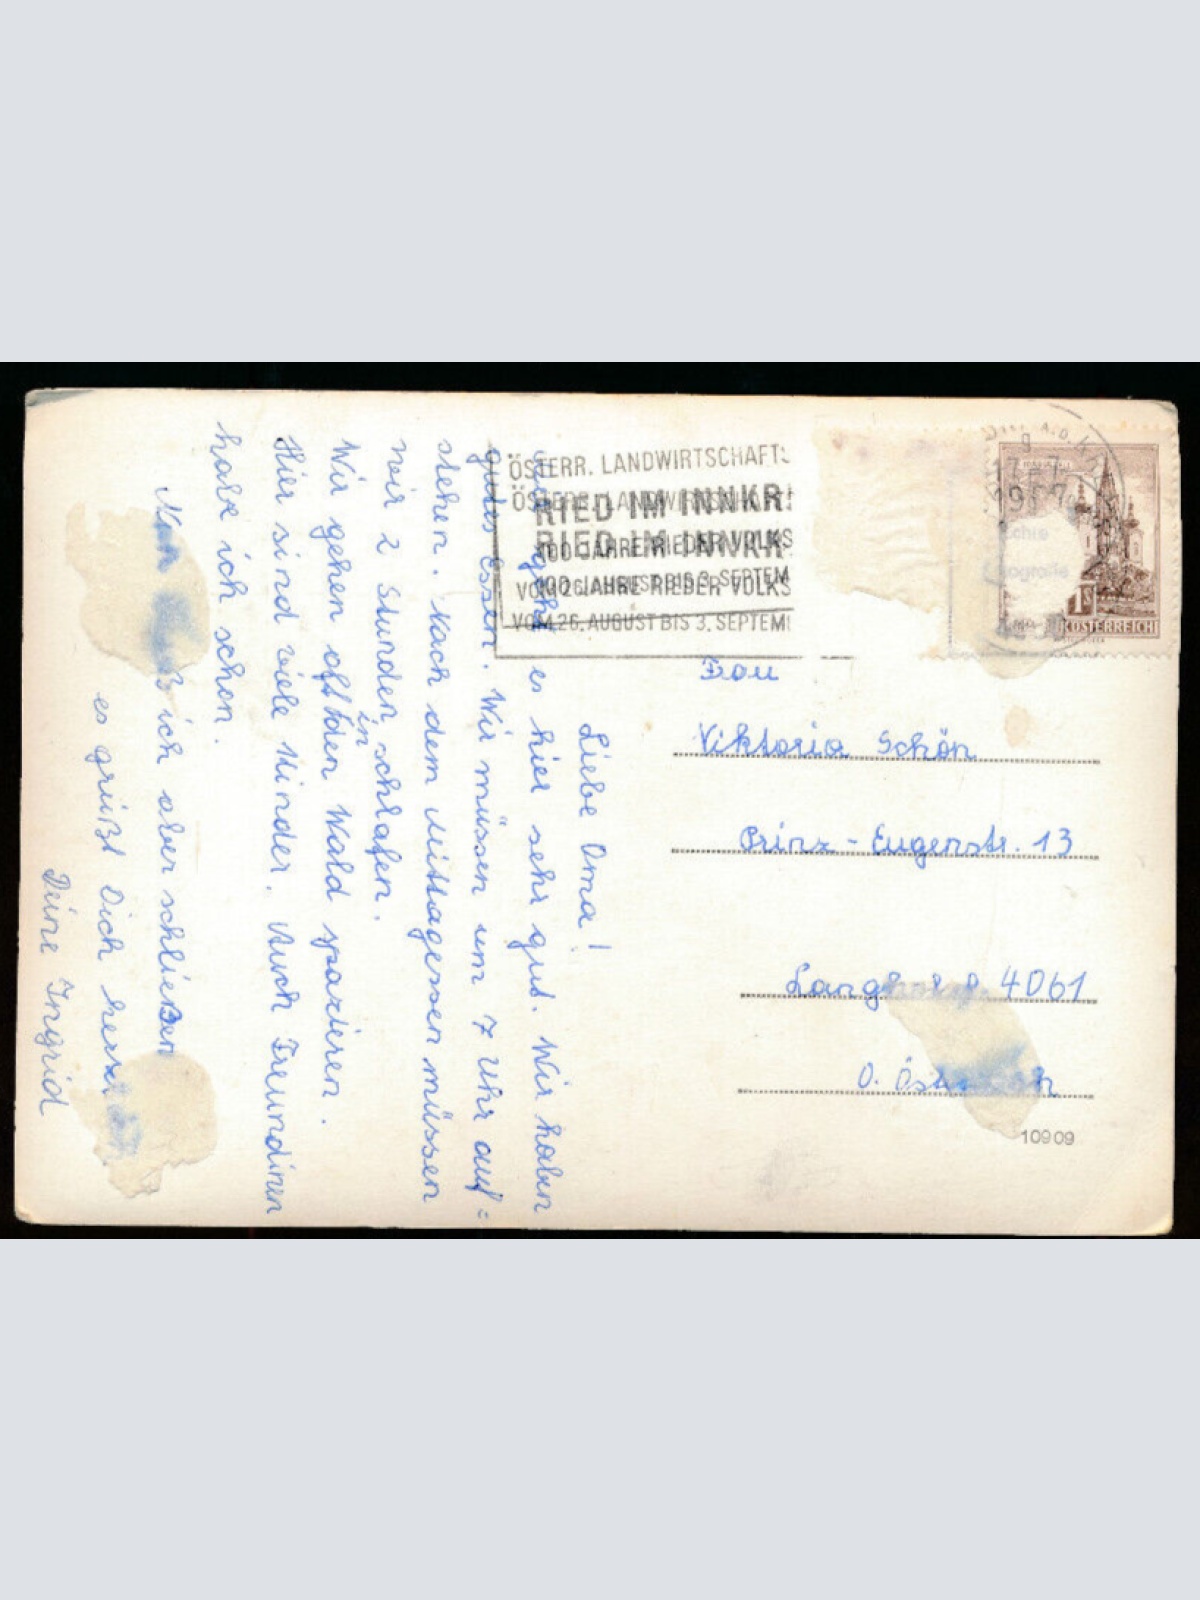 Liebe Oma!
Mir geht es hier sehr gut. Wir haben
gutes Essen. Wir müssen um 7 Uhr auf=
stehen. Nach dem Mittagessen müssen
wir 2 Stunden schlafen.
Wir gehen oft in den Wald spazieren.
Hier sind viele Kinder. Auch Freundinen
habe ich schon.
ich aber schließen
es grüßt Dich
Deine Ingrid
ÖSTERR. LANDWIRTSCHAFTS
ÖSTERR. LANDWIRTSCHAFTS
RIED IM INNKR
RIED IM INNKR
100 JAHRE RIEDER VOLKS
VOM 26. AUGUST BIS 3. SEPTEM
100 JAHRE RIEDER VOLKS
VOM 26. AUGUST BIS 3. SEPTEM
A.D.
9
17-7
1S
REPUBLIK ÖSTERREICH
Frau
Viktoria Schön
Prinz-Eugenstr. 13
4061
O.
10909